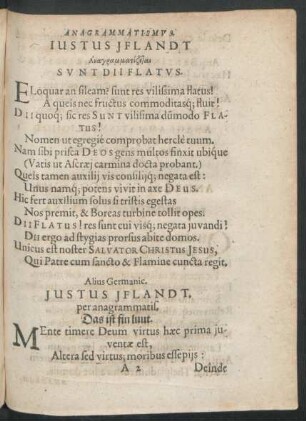 ANAGRAMMATISMVS
IUSTUS JFLANDT
SVNT DII FLATVS.
ELoquar an sileam? sunt res vilisima flatus!
A queis nec fructus commoditasq; fluit!
DII quoq; sic res SUNT vilisima dūmodo FLA-
TUS!
Nomen ut egregiè comprobet herclè tuum.
Nam sibi prisca DEOS gens multos finxit ubique
(Vatis ut Ascræi carmina docta probant.)
Queis tamen auxilij vis consilijq; negata est:
Unus namq; potens vivit in axe DEUS.
Hic fert auxilium solus si tristis egestas
Nos premit, & Boreas turbine tollit opes.
DII FLATUS! res sunt cui visq; negata juvandi!
Dii ergo ad stygias prorsus abite domos.
Unicus est noster SALVATOR CHRISTUS JESUS,
Qui Patre cum sancto & Flamine cuncta regit.
Alius Germanic.
JUSTUS JFLANDT,
per anagrammatis.
Das ist fin luut.
MEnte timere Deum virtus hæc prima ju-
ventæ est,
Altera sed virtus, moribus esse pijs:
A 2 Deinde